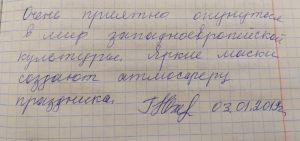 Очень приятно окунуться
в мир западноевропейской
культуры. Яркие маски
создают атмосферу
праздника.
03.01.2019г